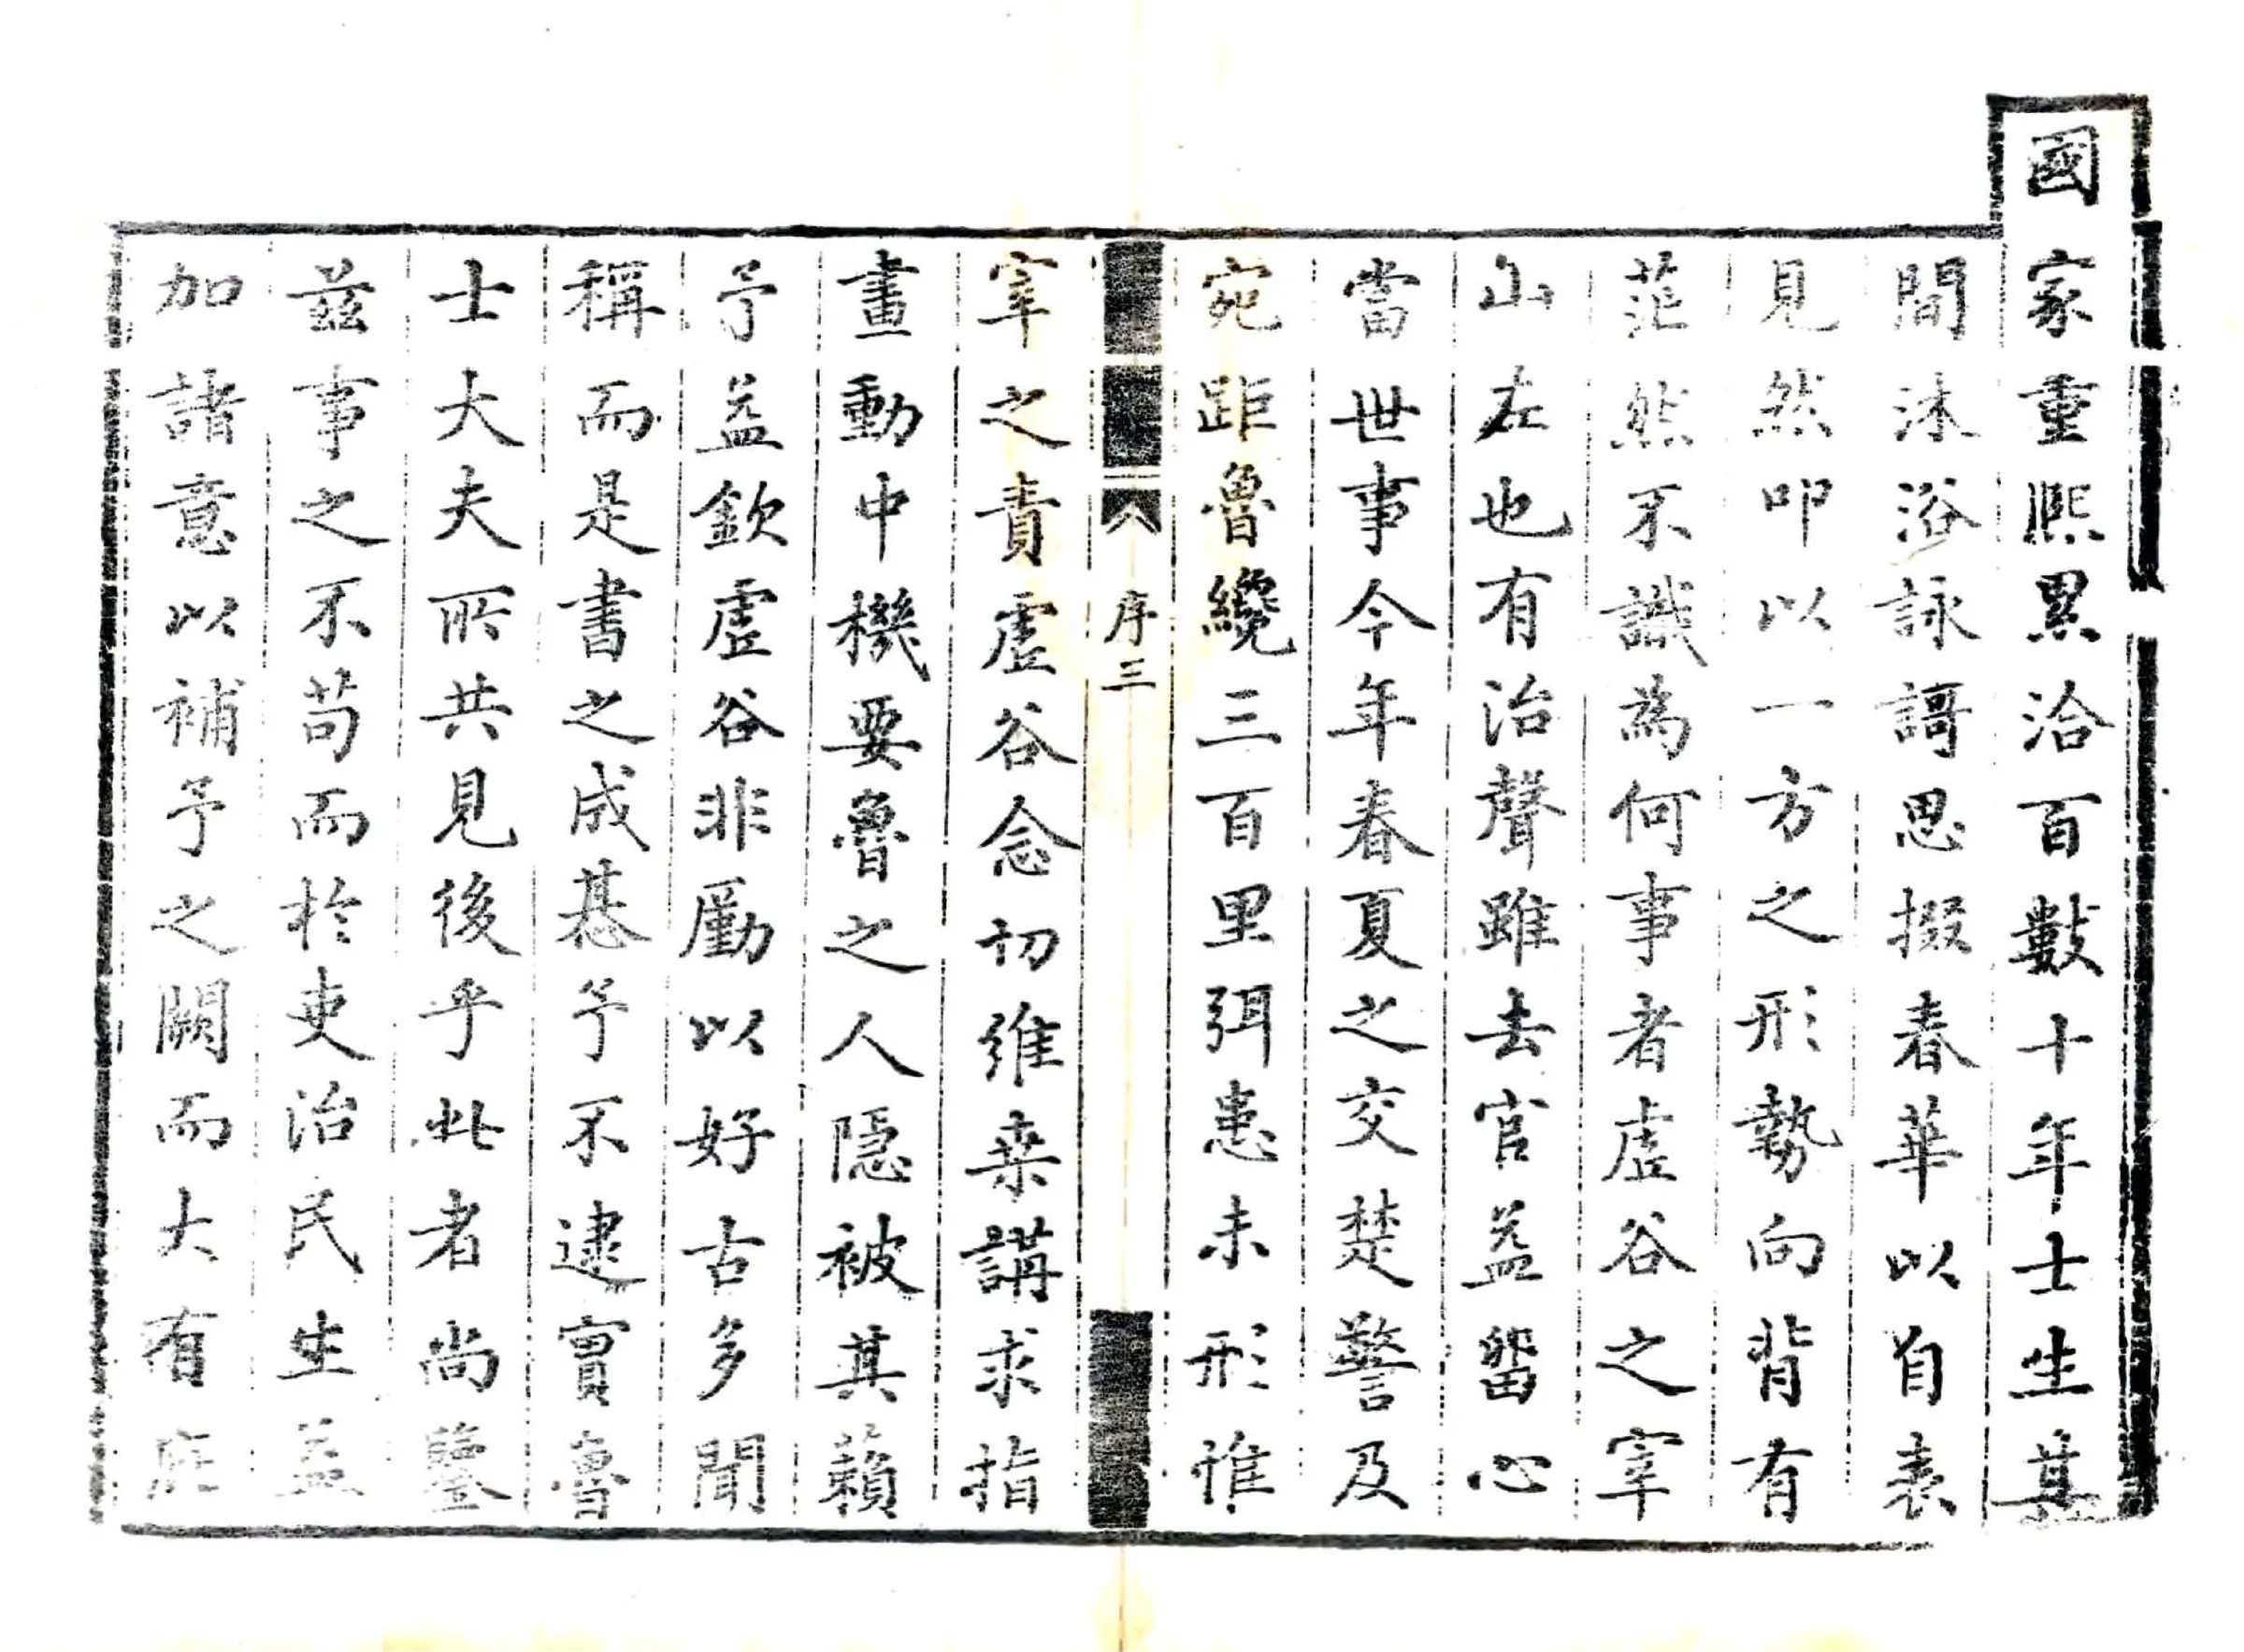 國家重熙累洽百數十年士生其
間沐浴詠謌思掇春華以自表
見然叩以一方之形勢向背有
茫然不識為何事者虛谷之宰
山左也有治聲雖去官益留心
當世事今年春夏之交楚警及
宛距魯纔三百里弭患未形惟
序三
宰之責虛谷念切維桑講求指
畫動中機要魯之人隱被其賴
予益欽虛谷非勵以好古多聞
稱而是書之成惎予不逮實魯
士大夫所共見後乎此者尚鑒
茲事之不苟而於吏治民生益
加諸意以補予之闕而大有